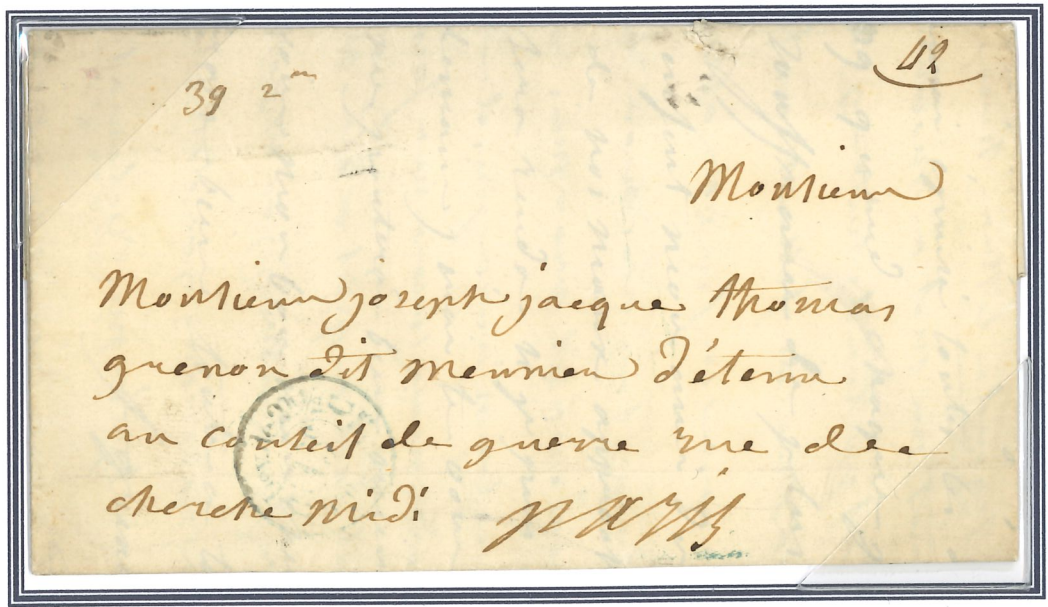 42
39 2
Monsieur
Monsieur joseph jacque thomas
grenon dit meunier d'étenu
au conseil de guerre rue de
cherche Midi paris